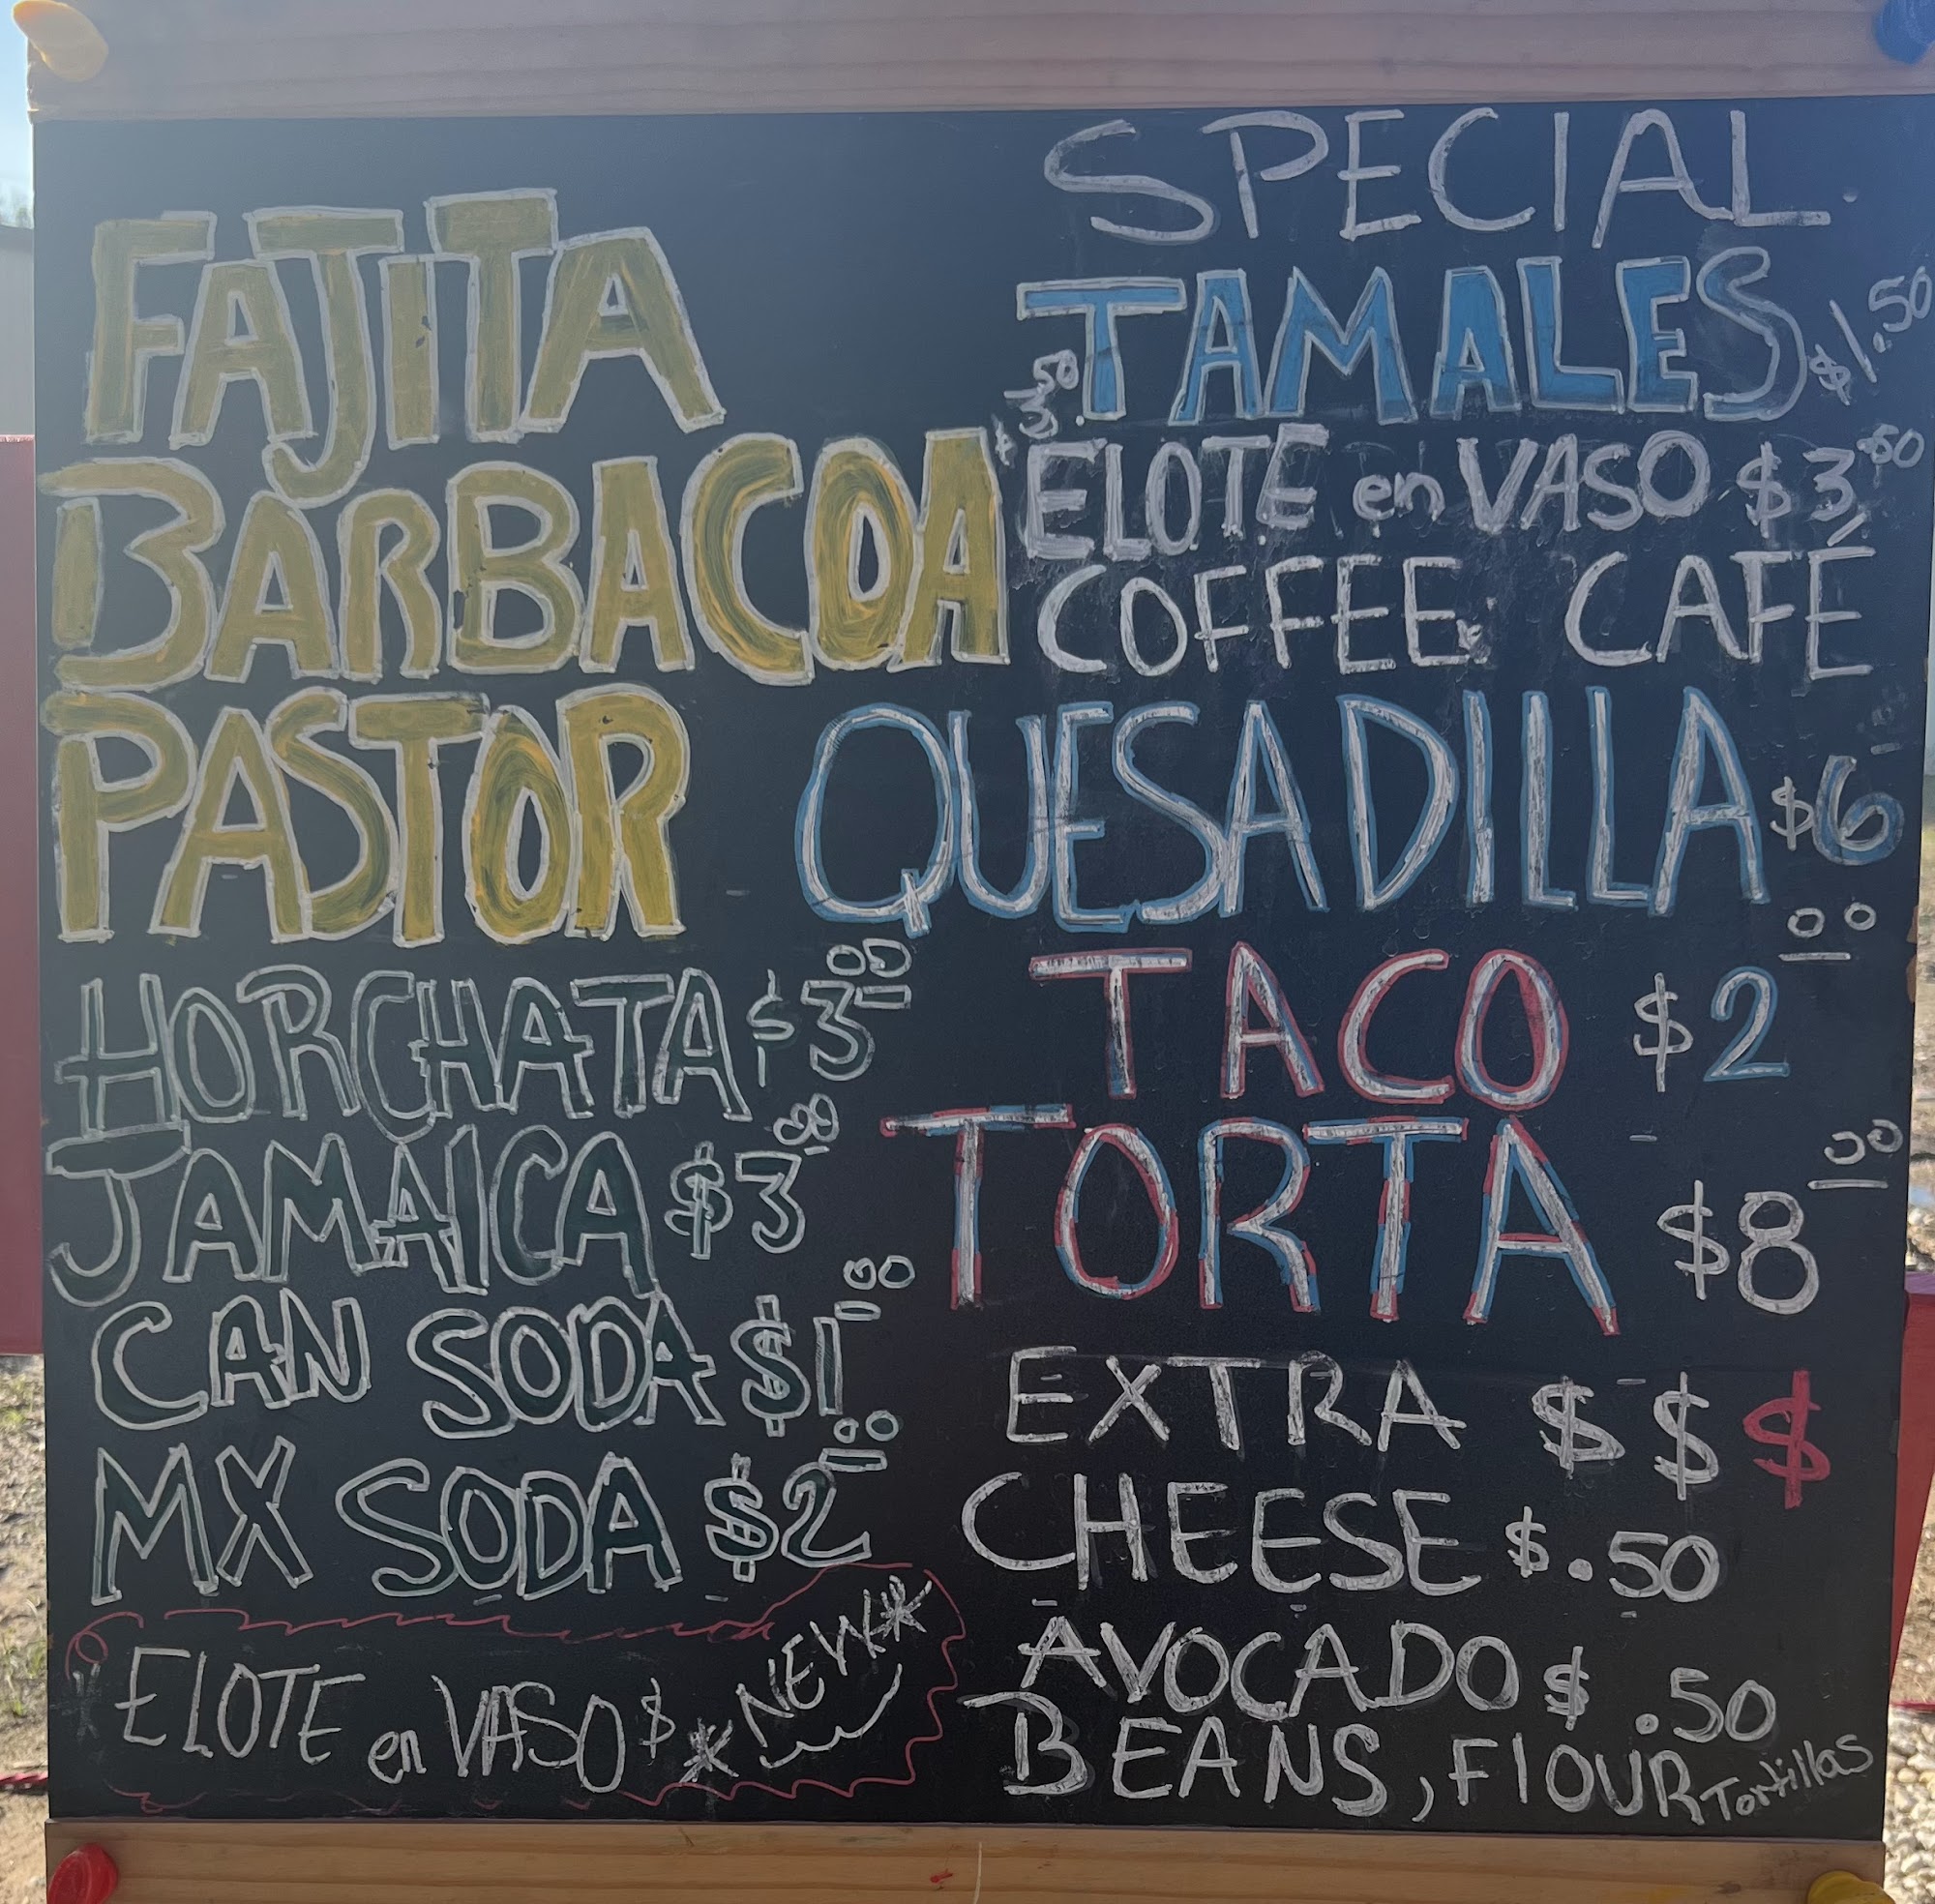 FAJITA
BARBACOA
PASTOR
HORCHATA $3.00
JAMAICA $3.00
CAN SODA $1.00
MX SODA $2.00
ELOTE en VASO $ *NEW*
SPECIAL
TAMALES $1.50
$3.50
ELOTE en VASO $3.50
COFFEE: CAFÉ
QUESADILLA $6
TACO $2.00
TORTA $8.00
EXTRA $ $ $
CHEESE $.50
AVOCADO $ .50
BEANS, FlOUR Tortillas